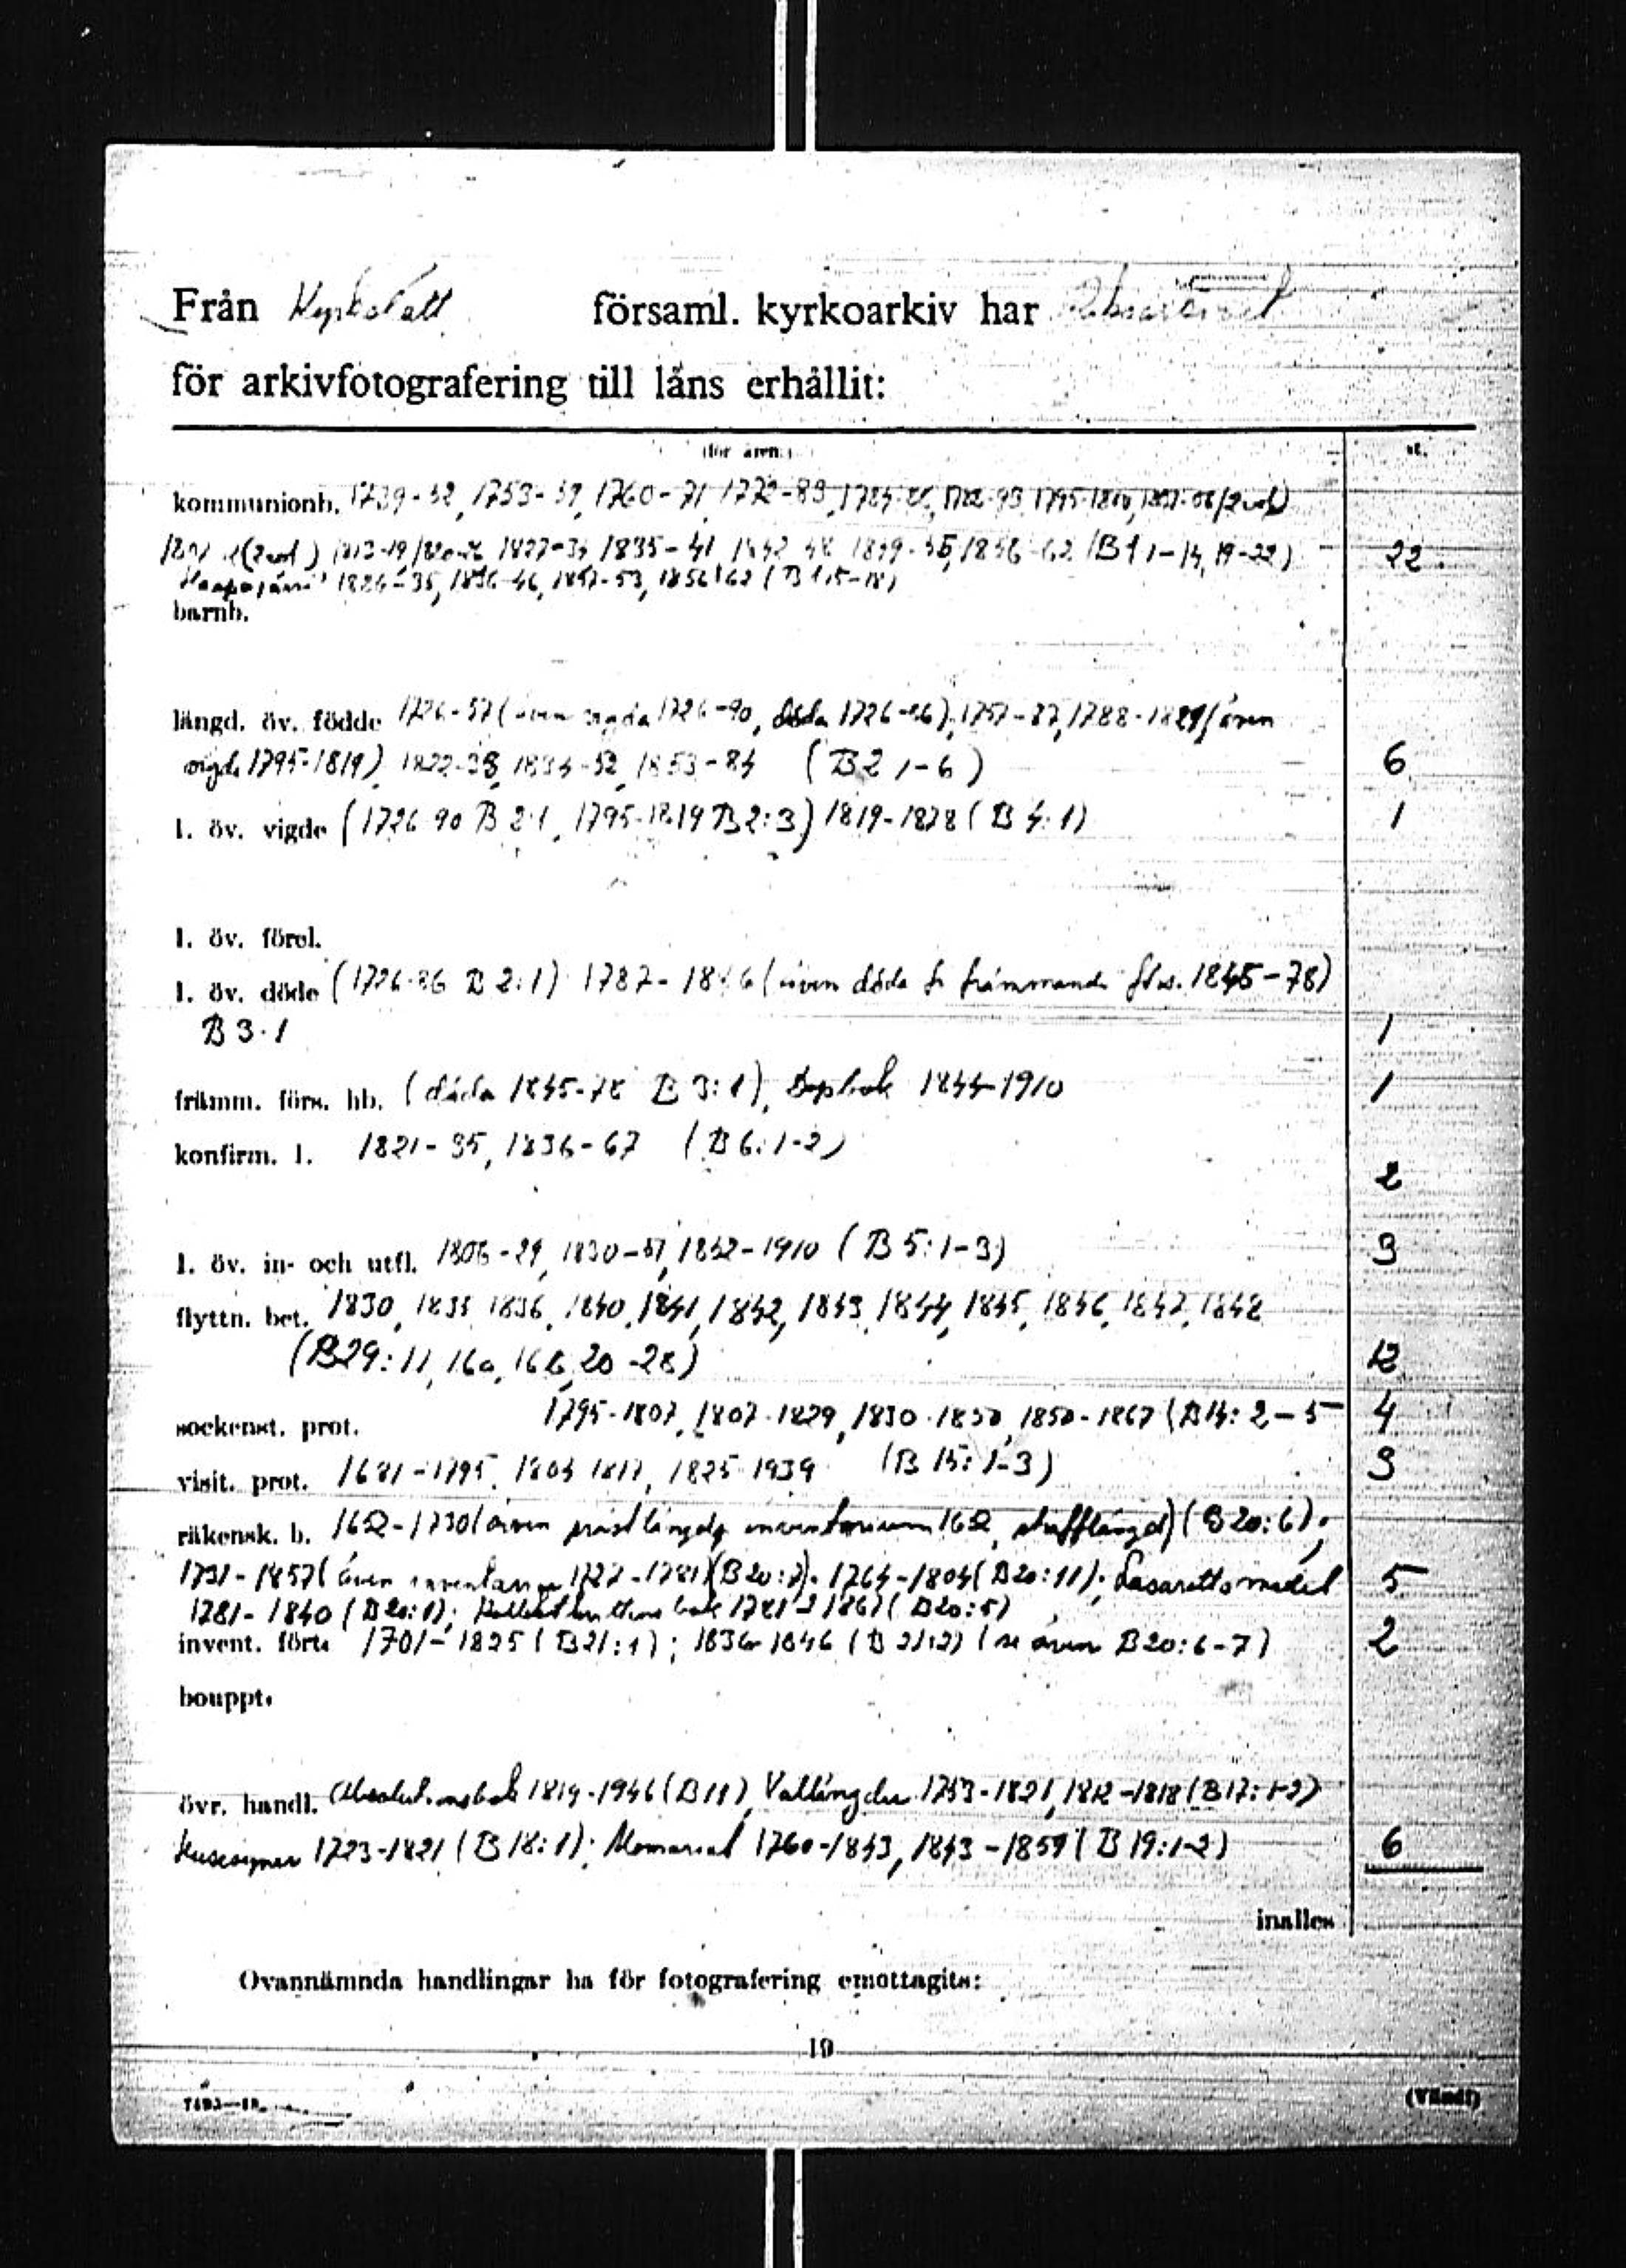 Från Kyrkslätt församl. kyrkoarkiv har Riksarkivet
för arkivfotografering till låns erhållit:
(för åren:) st.
kommunionb. 1739-52, 1753-59, 1760-71, 1772-83, 1784-, 1795-1800, (2 vol)
(2 vol) 1813-19, 1827-34 1835-41 1842-48 1849-55, 1856-62 (B1 1-14, 19-22) 22
Haapajärvi 1824-35, 1836-46, 1847-53, 1856-62 (B 1:15-18)
barnb.
längd. öv. födde 1726-57 (även vigda 1726-90, döda 1726-86), 1757-87, 1788-1829 (även
vigde 1795-1819), 1834-52, 1853-84 (B2 1-6) 6
l. öv. vigde (1726-90 B 2:1, 1795-1819 B 2:3) 1819-1878 (B 4:1) 1
l. öv. förel.
l. öv. döde (1726-86 B 2:1) 1787- (även döda fr främmande förs. 1845-78)
B 3:1 1
främm. förs. hb. (döda 1845-78 B 3:1), Dopbok 1844-1910 1
konfirm. l. 1821-35, 1836-67 (B 6:1-2)
2
l. öv. in- och utfl. 1806-29, 1830-51, 1852-1910 (B 5:1-3) 3
flyttn. bet. 1830, 1835 1836, 1840, 1841, 1842, 1843, 1844, 1845, 1846, 1847, 1848
(B29: 11, 16a, 16b, 20-28) 12
sockenst. prot. 1795-1807, 1807-1829, 1830-1850, 1850-1867 (B14: 2-5 4
visit. prot. 1681-1795, 1804 1817, 1825-1939 (B 15: 1-3) 3
räkensk. b. 1652-1730 (även prästlängd, inventarium 1652, stafflängd) (B 20:6);
1731-1857 (även 1727-1781) (B20:7). 1764-1804 (B20:11); Lasarettsmedel 5
1781-1840 (B20:1); bok (B20:5)
invent. fört. 1701-1825 (B21:1); 1836-1846 (B 21:2) (se även B20:6-7) 2
bouppt.
övr. handl. Absolutionsbok 1819-1946 (B11), Vallängder 1753-1821, 1812-1818 (B17:1-2)
Husesyner 1723-1821 (B 18:1); Memorial 1760-1843, 1843-1859 (B 19:1-2) 6
inalles
Ovannämnda handlingar ha för fotografering emottagits:
19
(Vänd!)